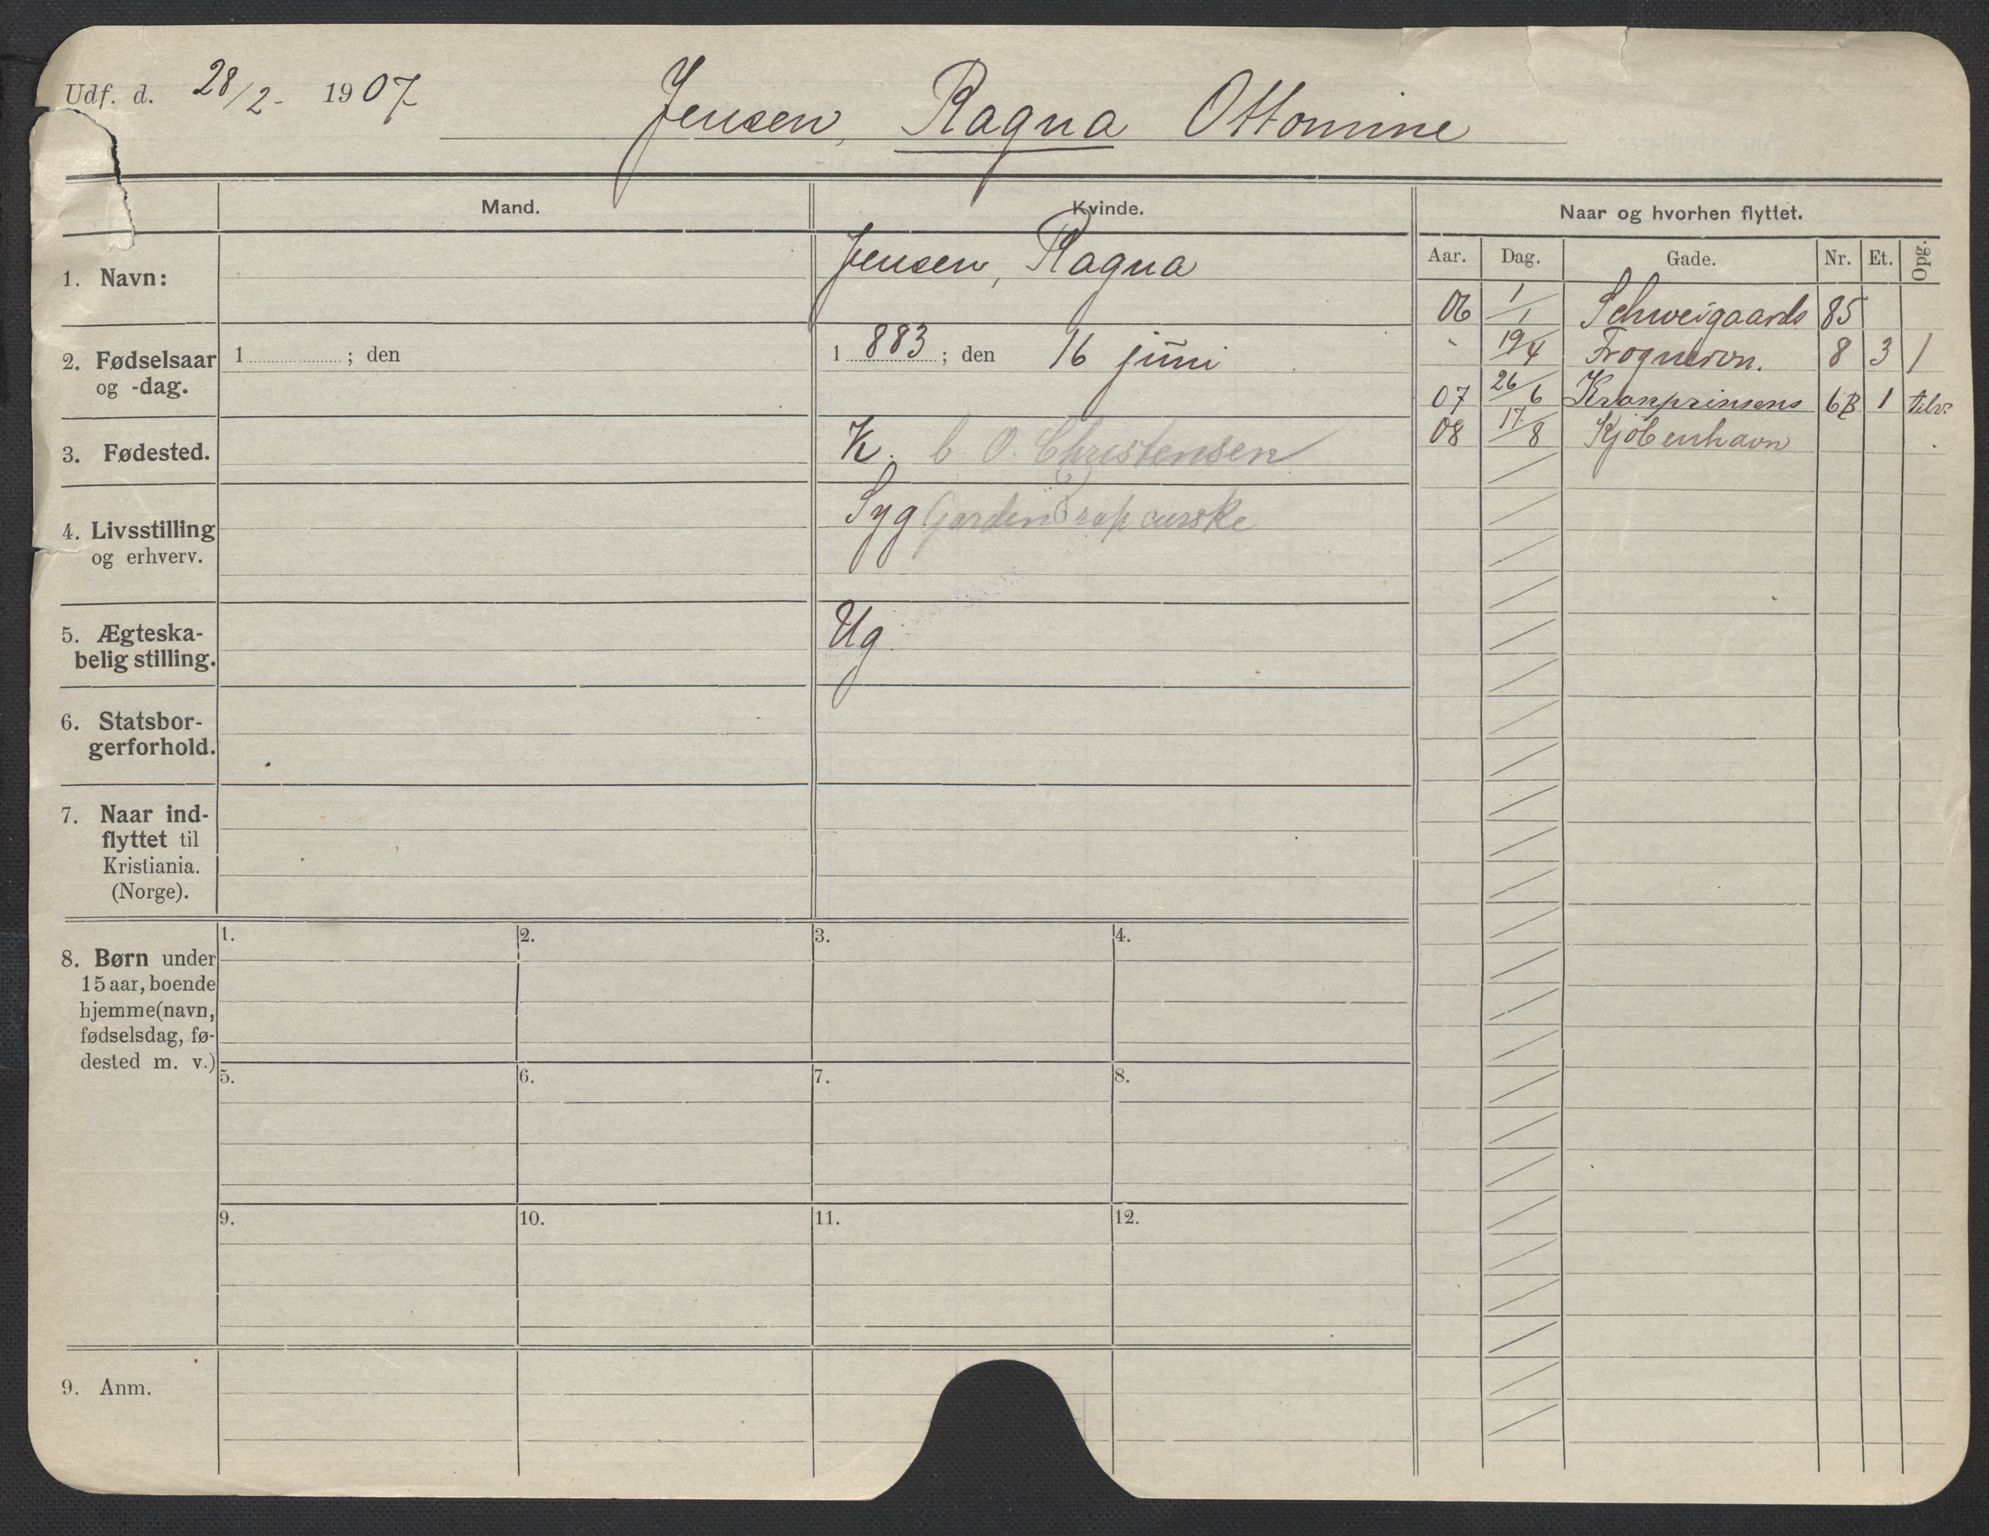 Udf. d. 28/2- 1907
Jensen, Ragna Ottomine
Mand. Kvinde. Naar og hvorhen flyttet.
Aar. Dag. Gade. Nr. Et. Opg.
1. Navn: Jensen, Ragna
06 1/1 Schweigaards 85
2. Fødselsaar og -dag. 1 ; den 1883 ; den 16 juni
" 19/4 Frognervn. 8 3 1
07 26/6 Kronprinsens 6B 1 tilv.
08 17/8 Kjøbenhavn
3. Fødested. K. C O. Christensen
4. Livsstilling og erhverv. Syg
5. Ægteska-
belig stilling. Ug.
6. Statsbor-
gerforhold.
7. Naar ind-
flyttet til
Kristiania.
(Norge).
8. Børn under
15 aar, boende
hjemme (navn,
fødselsdag, fø-
dested m. v.)
1. 2. 3. 4.
5. 6. 7. 8.
9. 10. 11. 12.
9. Anm.